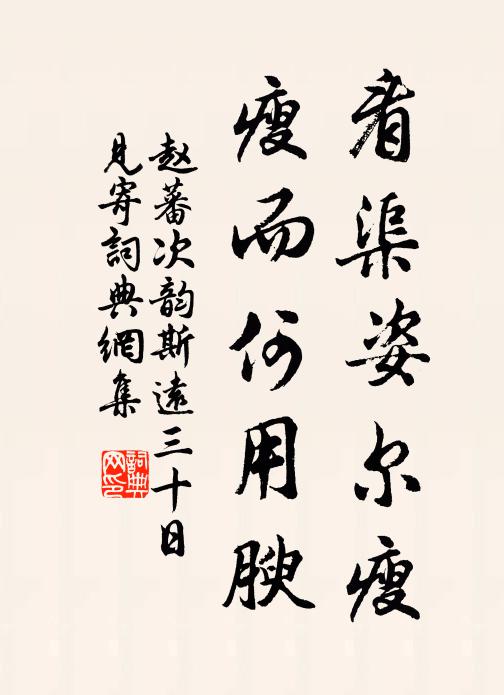 看渠姿尔瘦
瘦而何用腴
赵蕃次韵斯遠三十日
見寄詞典網集
詞典网印